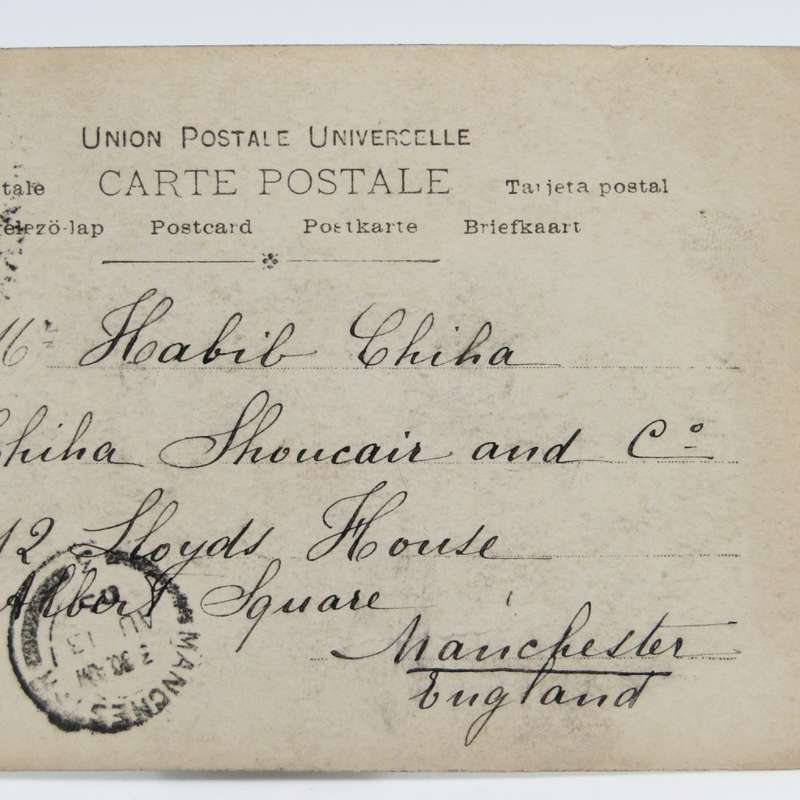 UNION POSTALE UNIVERSELLE
tale CARTE POSTALE Tarjeta postal
elező-lap Postcard Postkarte Briefkaart
Mr Habib Chiha
Chiha Shoucair and Co
12 Lloyds House
Albert Square
Manchester
England
MANCHESTER
7.30 AM
AU 13